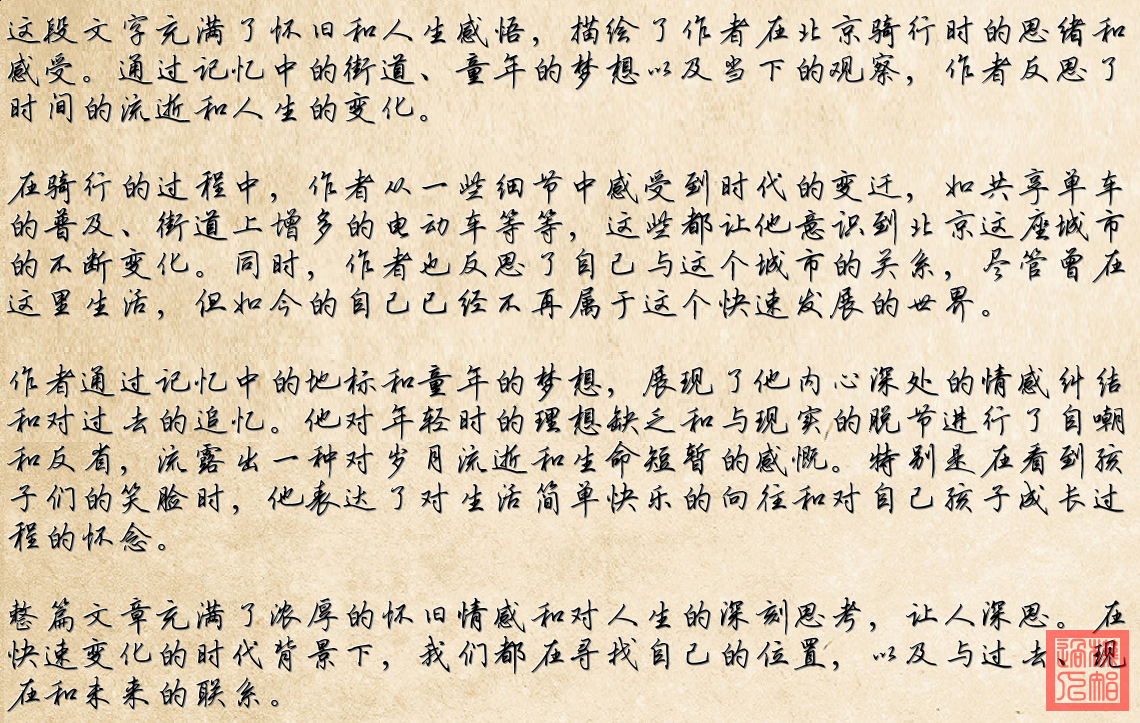 这段文字充满了怀旧和人生感悟，描绘了作者在北京骑行时的思绪和
感受。通过记忆中的街道、童年的梦想以及当下的观察，作者反思了
时间的流逝和人生的变化。
在骑行的过程中，作者从一些细节中感受到时代的变迁，如共享单车
的普及、街道上增多的电动车等等，这些都让他意识到北京这座城市
的不断变化。同时，作者也反思了自己与这个城市的关系，尽管曾在
这里生活，但如今的自己已经不再属于这个快速发展的世界。
作者通过记忆中的地标和童年的梦想，展现了他内心深处的情感纠结
和对过去的追忆。他对年轻时的理想缺乏和与现实的脱节进行了自嘲
和反省，流露出一种对岁月流逝和生命短暂的感慨。特别是在看到孩
子们的笑脸时，他表达了对生活简单快乐的向往和对自己孩子成长过
程的怀念。
整篇文章充满了浓厚的怀旧情感和对人生的深刻思考，让人深思。在
快速变化的时代背景下，我们都在寻找自己的位置，以及与过去、现
在和未来的联系。